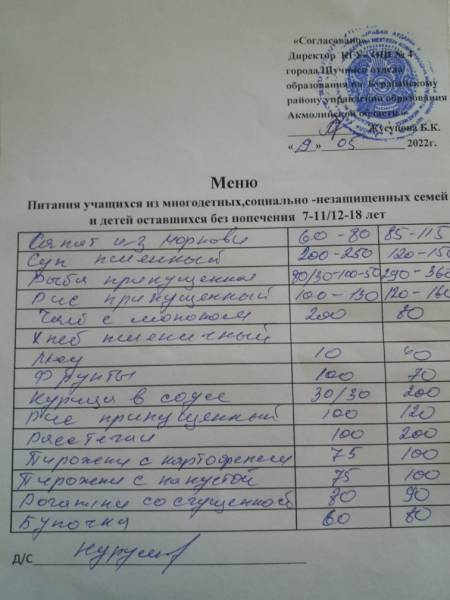 «Согласовано»
Директор КГУ «ОШ № 4
города Щучинск отдела
образования по Бурабайскому
району управления образования
Акмолинской области»
Жусупова Б.К.
« 19 » 05 2022г.
Меню
Питания учащихся из многодетных,социально -незащищенных семей
и детей оставшихся без попечения 7-11/12-18 лет
Салат из моркови 60-80 85-115
Суп пшенный 200-250 120-150
Рыба припущенная 90/30-100-50 290-360
Рис припущенный 100-130 120-160
Чай с молоком 200 80
Хлеб пшеничный
Мёд 10 40
Фрукты 100 70
Курица в соусе 30/30 200
Рис припущенный 100 120
100 200
Пирожки с картофелем 75 100
Пирожки с капустой 75 100
Рогалики со сгущенкой 80 90
Булочка 60 80
Д/С